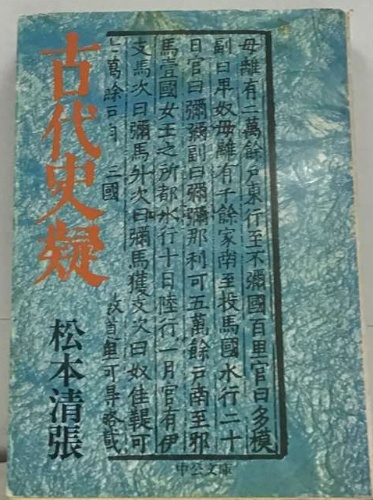 古代史疑
松本清張
母離有二萬餘戸東行至不彌國百里官曰多模
副曰卑奴母離有千餘家南至投馬國水行二十
日官曰彌彌副曰彌彌那利可五萬餘戸南至邪
馬壹國女王之所都水行十日陸行一月官有伊
支馬次曰彌馬升次曰彌馬獲支次曰奴佳鞮可
七萬餘戸自 國
中公文庫